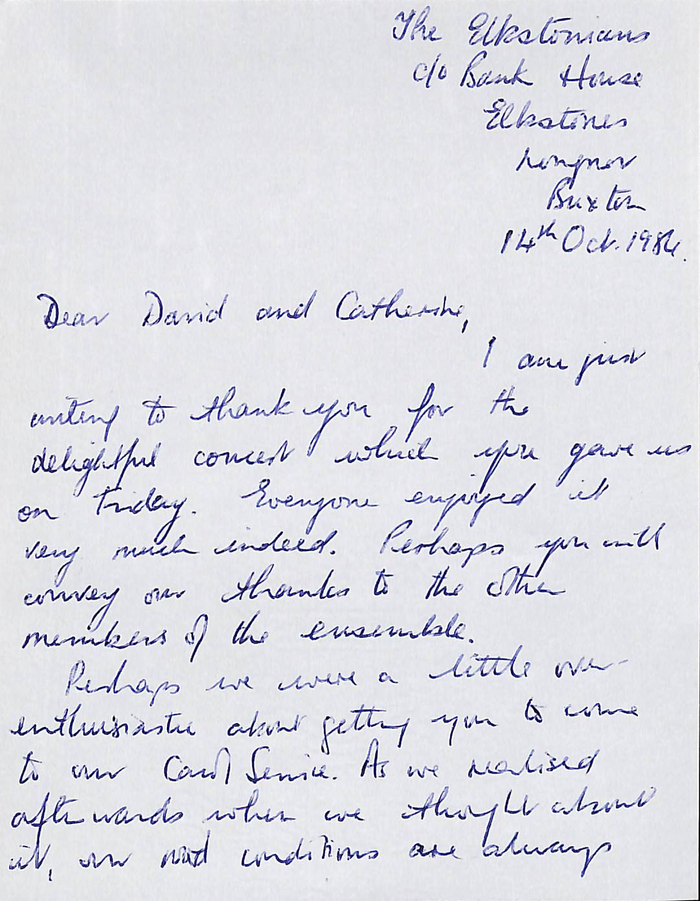 The Elkstonians
c/o Bank House
Elkstones
Longnor
Buxton
14th Oct. 1984.
Dear David and Catherine,
I am just
writing to thank you for the
delightful concert which you gave us
on Friday. Everyone enjoyed it
very much indeed. Perhaps you will
convey our thanks to the other
members of the ensemble.
Perhaps we were a little over-
enthusiastic about getting you to come
to our Carol Service. As we realised
afterwards when we thought about
it, our road conditions are always